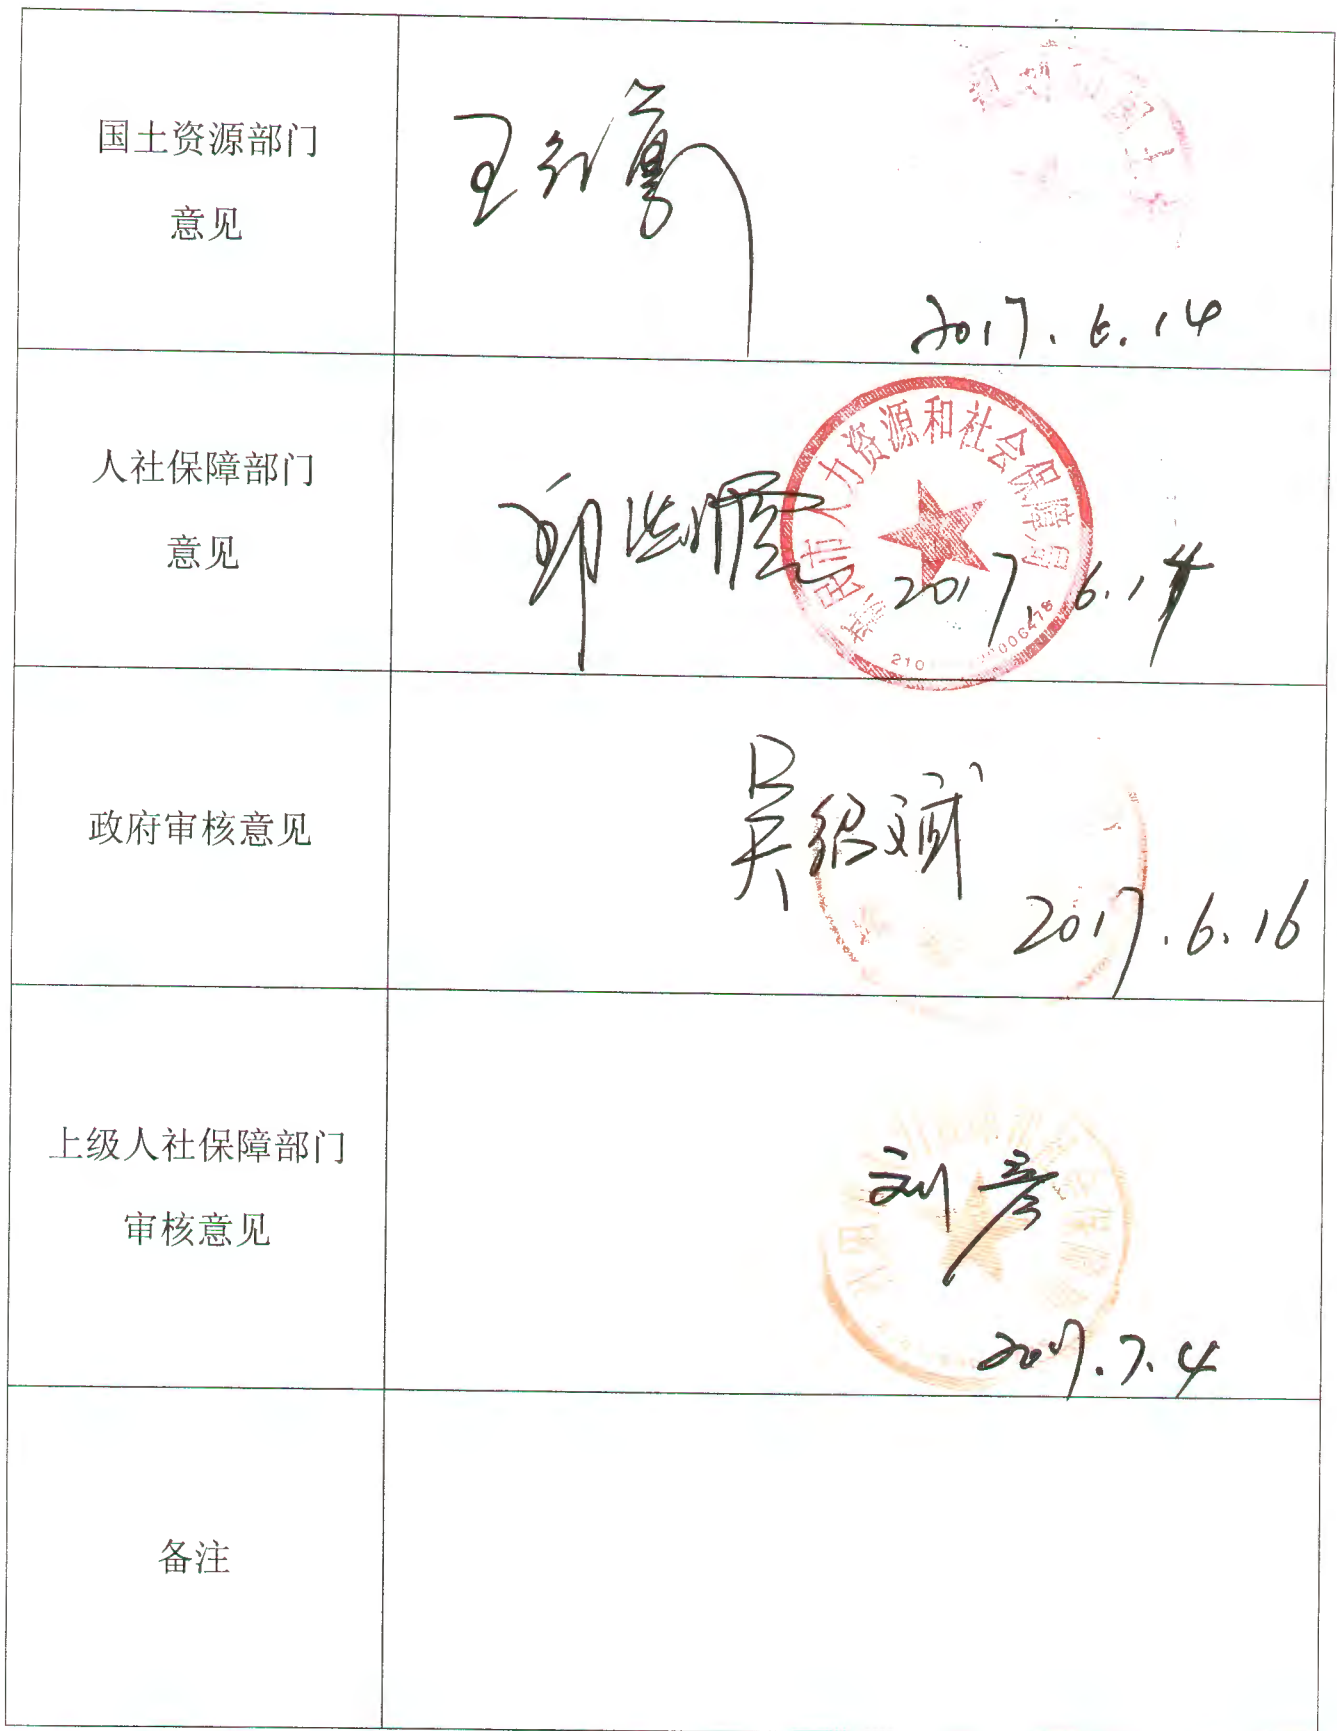 国土资源部门
意见
2017.6.14
人社保障部门
意见
新民市人力资源和社会保障局
2017.6.14
210
006478
政府审核意见
吴绍斌
2017.6.16
上级人社保障部门
审核意见
刘彦
2017.7.4
备注